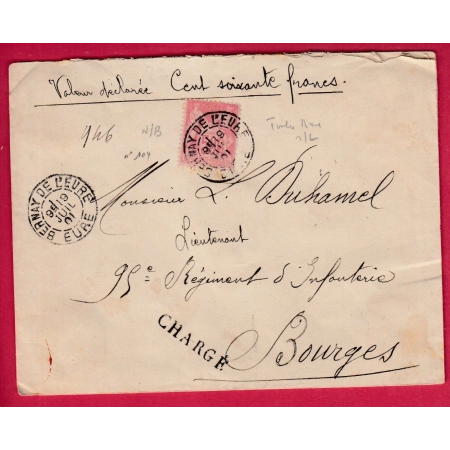 Valeur déclarée Cent soixante francs.
946 N/B
n° 104
BERNAY DE L'EURE
19
JUIL
01
EURE
BERNAY DE L'EURE
19
JUIL
01
EURE
Monsieur L. Duhamel
Lieutenant
95e Régiment d'Infanterie
CHARGÉ
Bourges